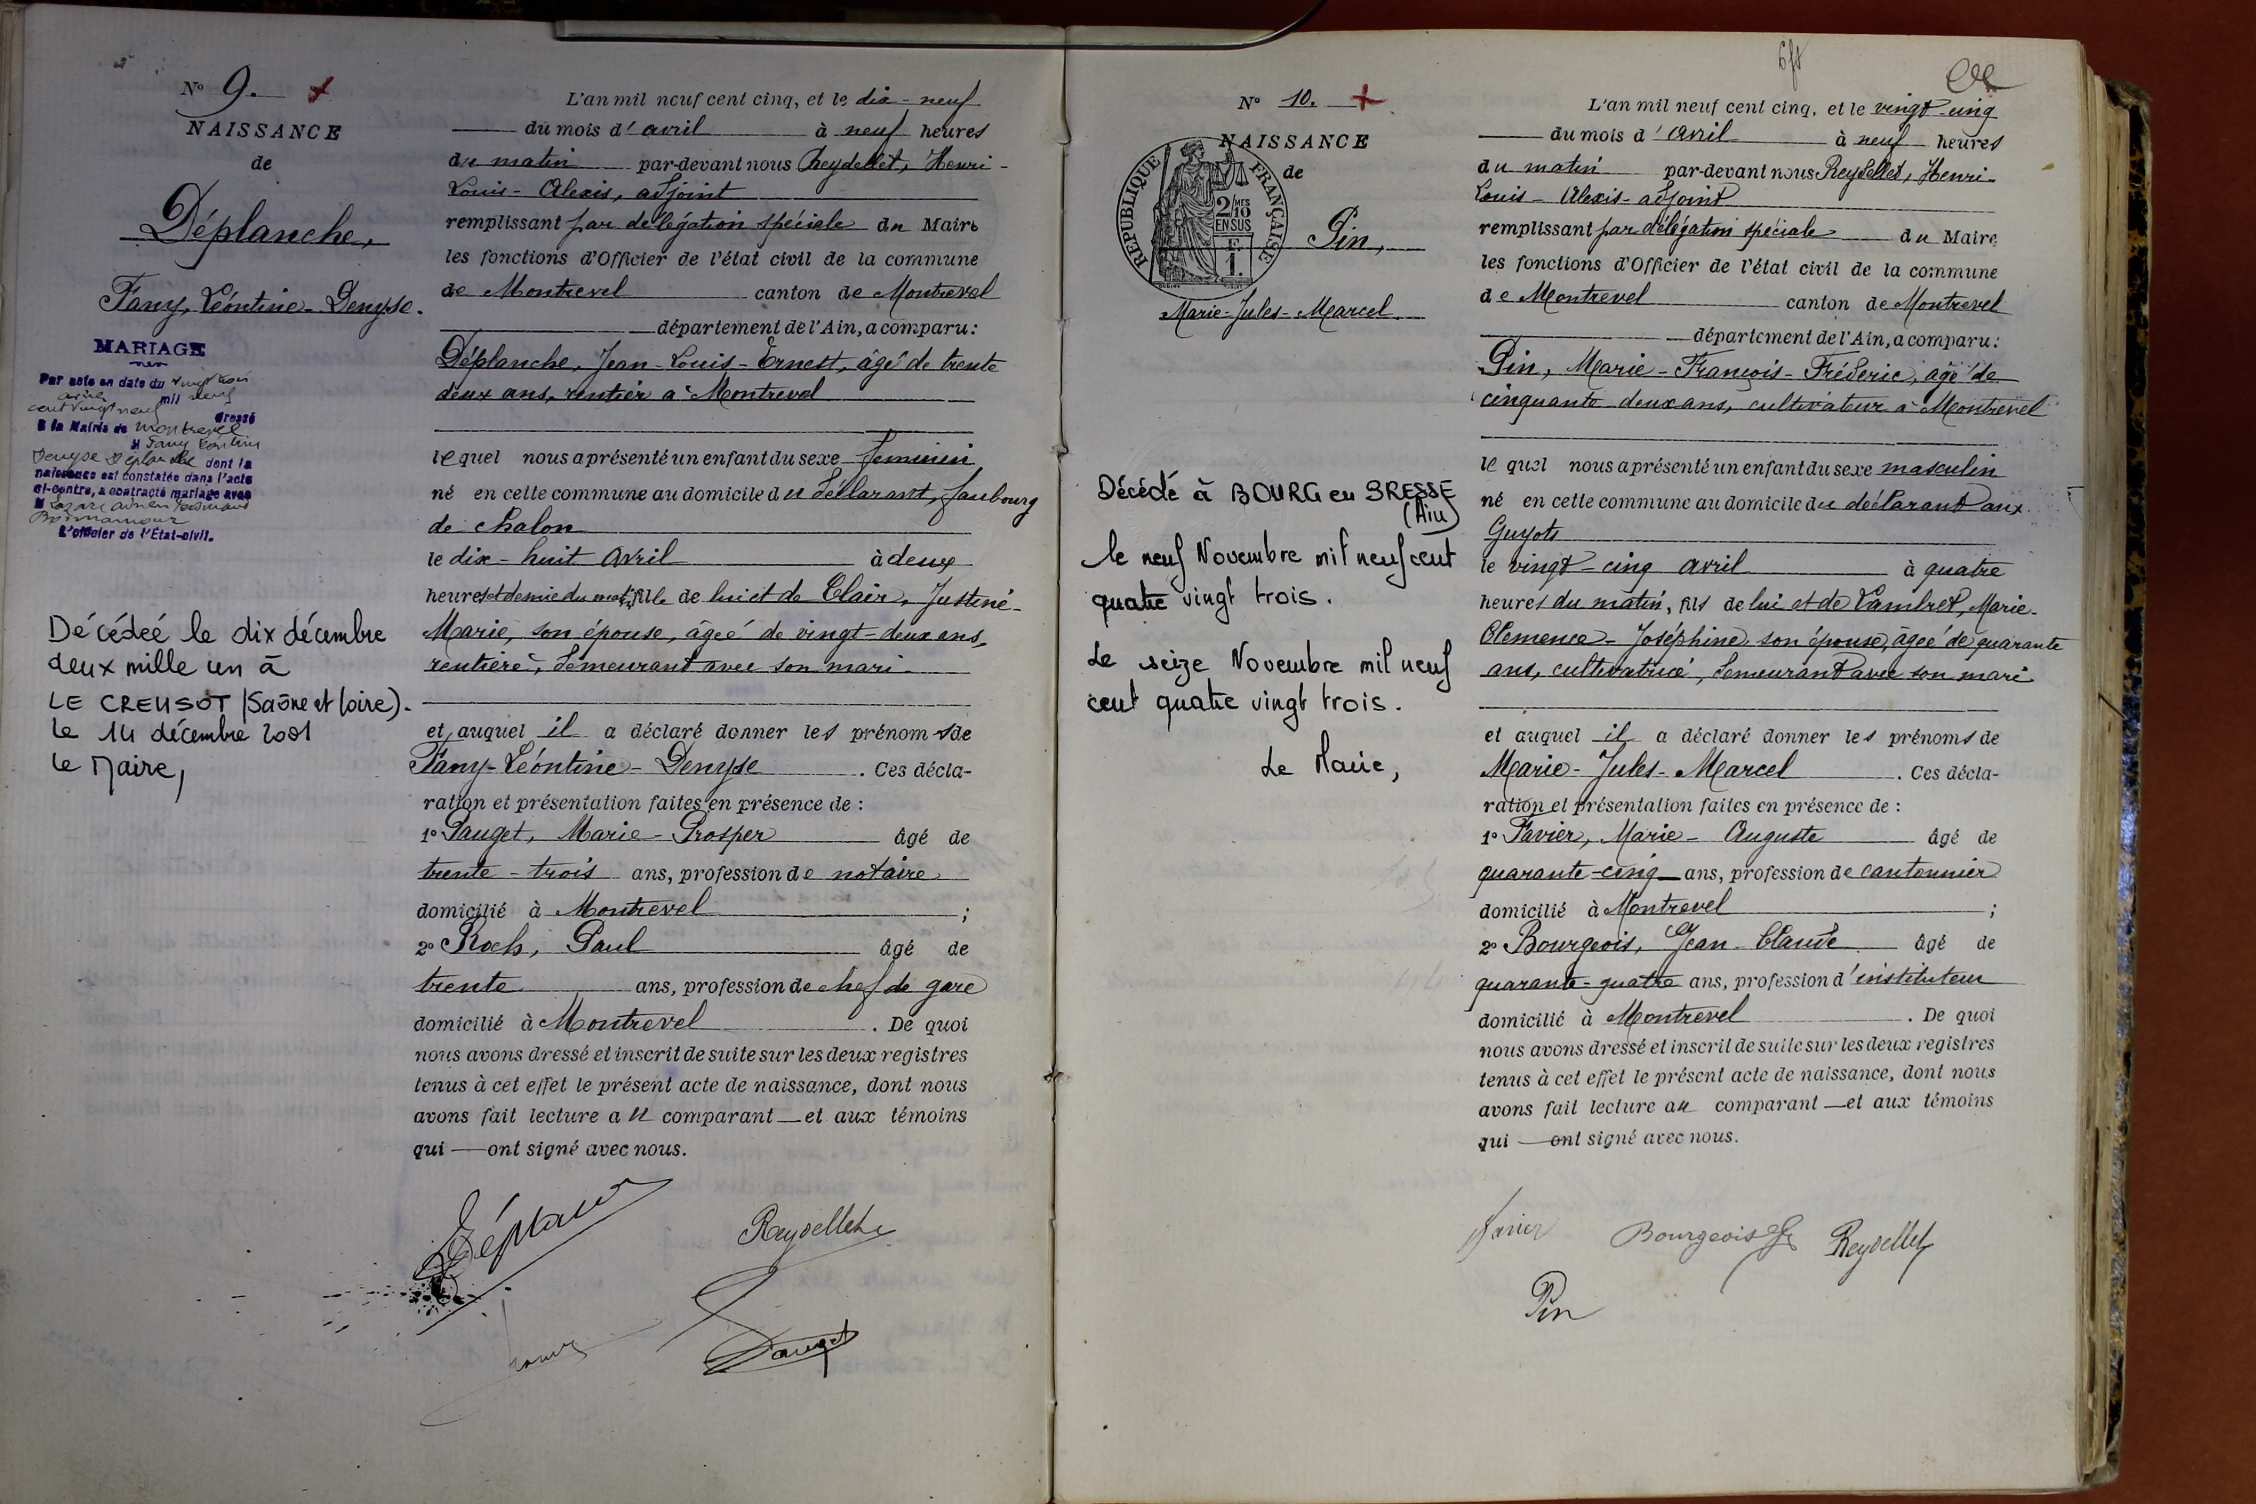 N° 9.
NAISSANCE
de
Déplanche,
Fany, Léontine-Denyse.
MARIAGE
Par acte en date du vingt trois
avril mil neuf
cent vingt neuf dressé
à la Mairie de Montrevel
M Fany Léontine
Denyse Déplanche dont la
naissance est constatée dans l'acte
ci-contre, a contracté mariage avec
M
L'officier de l'Etat-civil.
Décédeé le dix décembre
deux mille un à
LE CREUSOT (Saône et Loire).
Le 14 décembre 2001
Le Maire,
L'an mil neuf cent cinq, et le dix-neuf
du mois d'avril à neuf heures
du matin par-devant nous Reydellet, Henri-
Louis-Alexis, adjoint
remplissant par délégation spéciale du Maire
les fonctions d'Officier de l'état civil de la commune
de Montrevel canton de Montrevel
département de l'Ain, a comparu:
Déplanche, Jean-Louis-Ernest, âgé de trente
deux ans, rentier à Montrevel
lequel nous a présenté un enfant du sexe feminin
né en cette commune au domicile du déclarant, faubourg
de Chalon
le dix-huit avril à deux
heures et demie du matin, fille de lui et de Clair, Justine-
Marie, son épouse, âgée de vingt-deux ans,
rentière, demeurant avec son mari
et auquel il a déclaré donner les prénoms de
Fany-Léontine-Denyse. Ces décla-
ration et présentation faites en présence de :
1° Pauget, Marie-Prosper âgé de
trente-trois ans, profession de notaire
domicilié à Montrevel ;
2° Roch, Paul âgé de
trente ans, profession de chef de gare
domicilié à Montrevel. De quoi
nous avons dressé et inscrit de suite sur les deux registres
tenus à cet effet le présent acte de naissance, dont nous
avons fait lecture au comparant et aux témoins
qui ont signé avec nous.
Déplanche
Reydellet
Pauget
N° 10.
NAISSANCE
de
RÉPUBLIQUE FRANÇAISE
2/10 MES
EN SUS
F.
1.
Pin,
Marie-Jules-Marcel
Décédé à BOURG en BRESSE
(Ain)
le neuf Novembre mil neuf cent
quatre vingt trois.
Le seize Novembre mil neuf
cent quatre vingt trois.
Le Maire,
L'an mil neuf cent cinq, et le vingt-cinq
du mois d'avril à neuf heures
du matin par-devant nous Reydellet, Henri-
Louis-Alexis-adjoint
remplissant par délégation spéciale du Maire
les fonctions d'Officier de l'état civil de la commune
de Montrevel canton de Montrevel
département de l'Ain, a comparu:
Pin, Marie-François-Fréderic, âgé de
cinquante-deux ans, cultivateur à Montrevel
lequel nous a présenté un enfant du sexe masculin
né en cette commune au domicile du déclarant aux
Guyots
le vingt-cinq avril à quatre
heures du matin, fils de lui et de Lambret, Marie-
Clemence-Joséphine, son épouse, âgée de quarante
ans, cultivatrice, demeurant avec son mari
et auquel il a déclaré donner les prénoms de
Marie-Jules-Marcel. Ces décla-
ration et présentation faites en présence de :
1° Favier, Marie-Auguste âgé de
quarante-cinq ans, profession de cantonnier
domicilié à Montrevel ;
2° Bourgeois, Jean-Claude âgé de
quarante-quatre ans, profession d'instituteur
domicilié à Montrevel. De quoi
nous avons dressé et inscrit de suite sur les deux registres
tenus à cet effet le présent acte de naissance, dont nous
avons fait lecture au comparant et aux témoins
qui ont signé avec nous.
Favier Bourgeois Reydellet
Pin